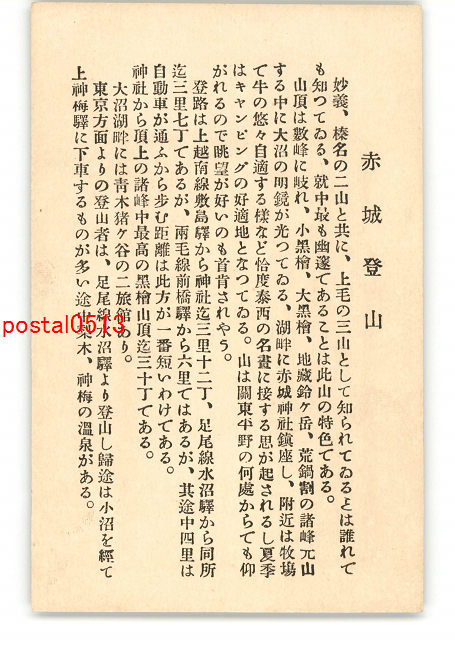 赤城登山
妙義、榛名の二山と共に、上毛の三山として知られてゐるとは誰れで
も知つてゐる、就中最も幽邃であることは此山の特色である。
山頂は數峰に岐れ、小黑檜、大黑檜、地藏鈴ヶ岳、荒鍋割の諸峰元山
する中に大沼の明鏡が光つてゐる、湖畔に赤城神社鎮座し、附近は牧場
で牛の悠々自適する樣など恰度泰西の名畫に接する思が起されるし夏季
はキャンピングの好適地となつてゐる。山は關東平野の何處からでも仰
がれるので眺望が好いのも首肯されやう。
登路は上越南線敷島驛から神社迄三里十二丁、足尾線水沼驛から同所
迄三里七丁であるが、兩毛線前橋驛から六里てはあるが、其途中四里は
自動車が通ふから歩む距離は此方が一番短いわけである。
神社から頂上の諸峰中最高の黑檜山頂迄三十丁である。
大沼湖畔には靑木猪ヶ谷の二旅館あり。
東京方面よりの登山者は、足尾線水沼驛より登山し歸途は小沼を經て
上神梅驛に下車するものが多い途中梨木、神梅の溫泉がある。
postal0513